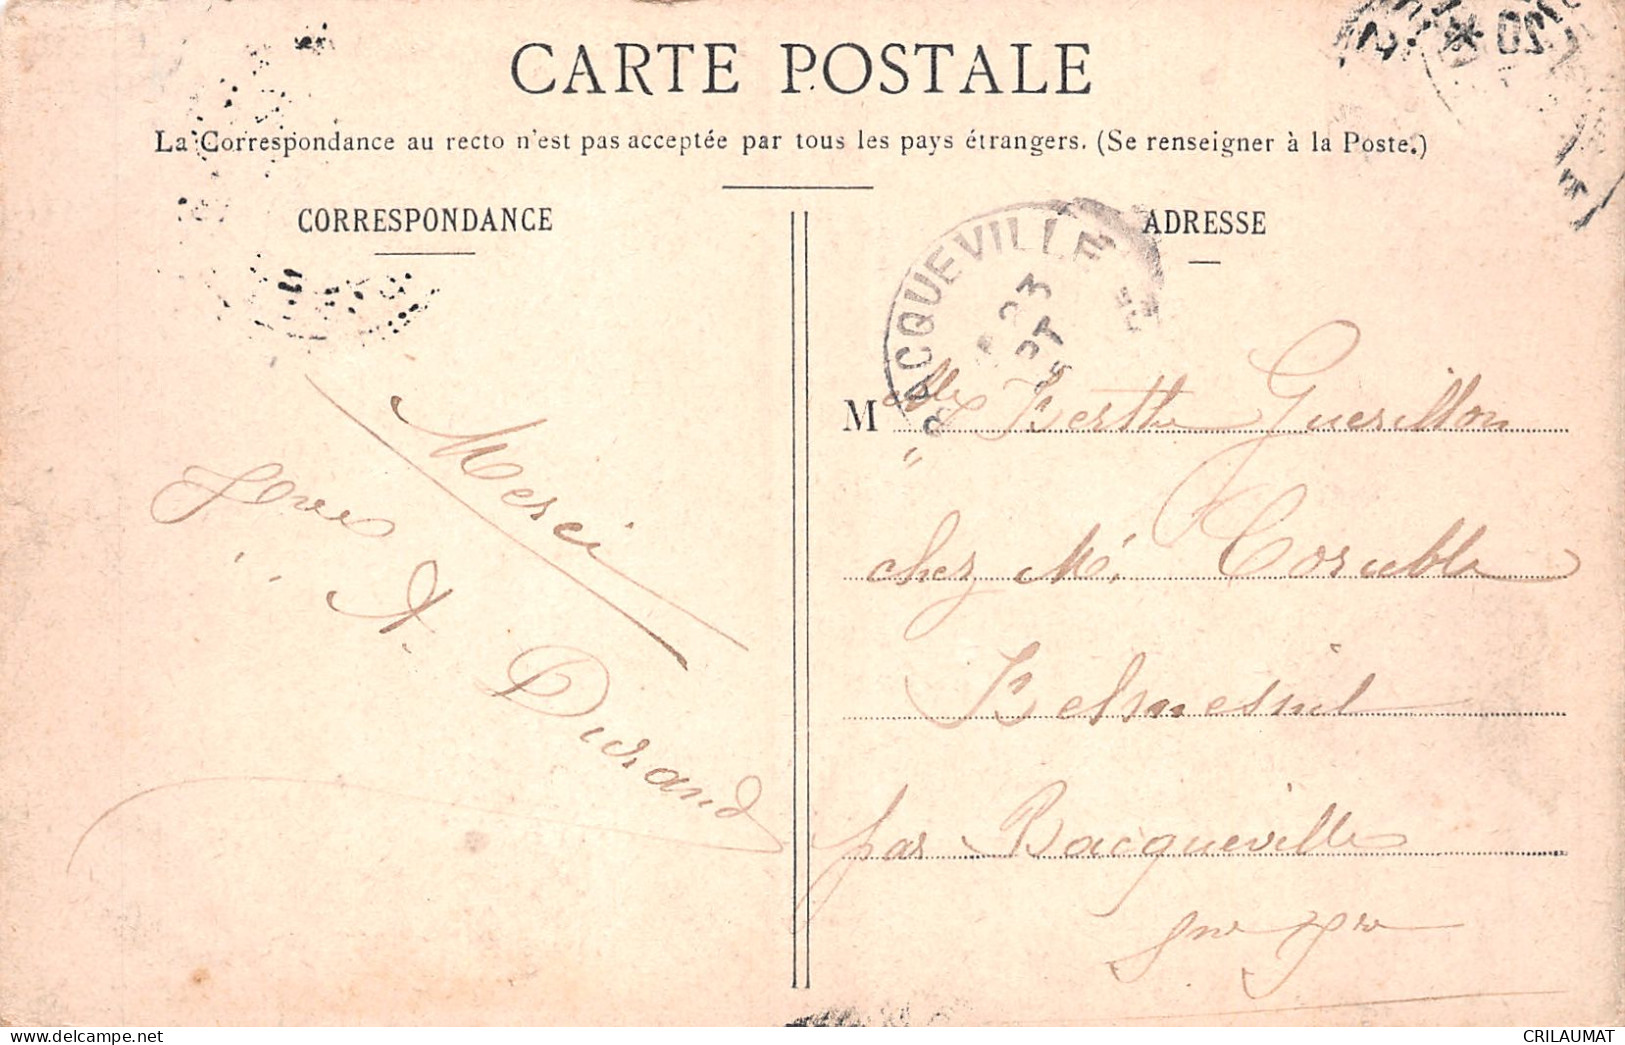 CARTE POSTALE
La Correspondance au recto n'est pas acceptée par tous les pays étrangers. (Se renseigner à la Poste.)
CORRESPONDANCE
Merci
A. Durand
ADRESSE
BACQUEVILLE
23
M elle Berthe Guerillon
chez Mr. Corubla
Belmesnil
par Bacqueville
delcampe.net
CRILAUMAT